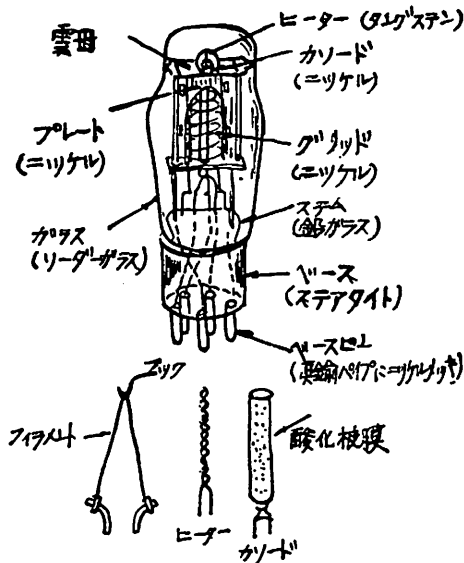 ヒーター (タングステン)
雲母
カソード
(ニッケル)
プレート
(ニッケル)
グリッド
(ニッケル)
ステム
(鉛ガラス)
ガラス
(リーダーガラス)
ベース
(ステアタイト)
ベースピン
(真鍮パイプにニッケルメッキ)
フック
フィラメント
酸化被膜
ヒーター
カソード